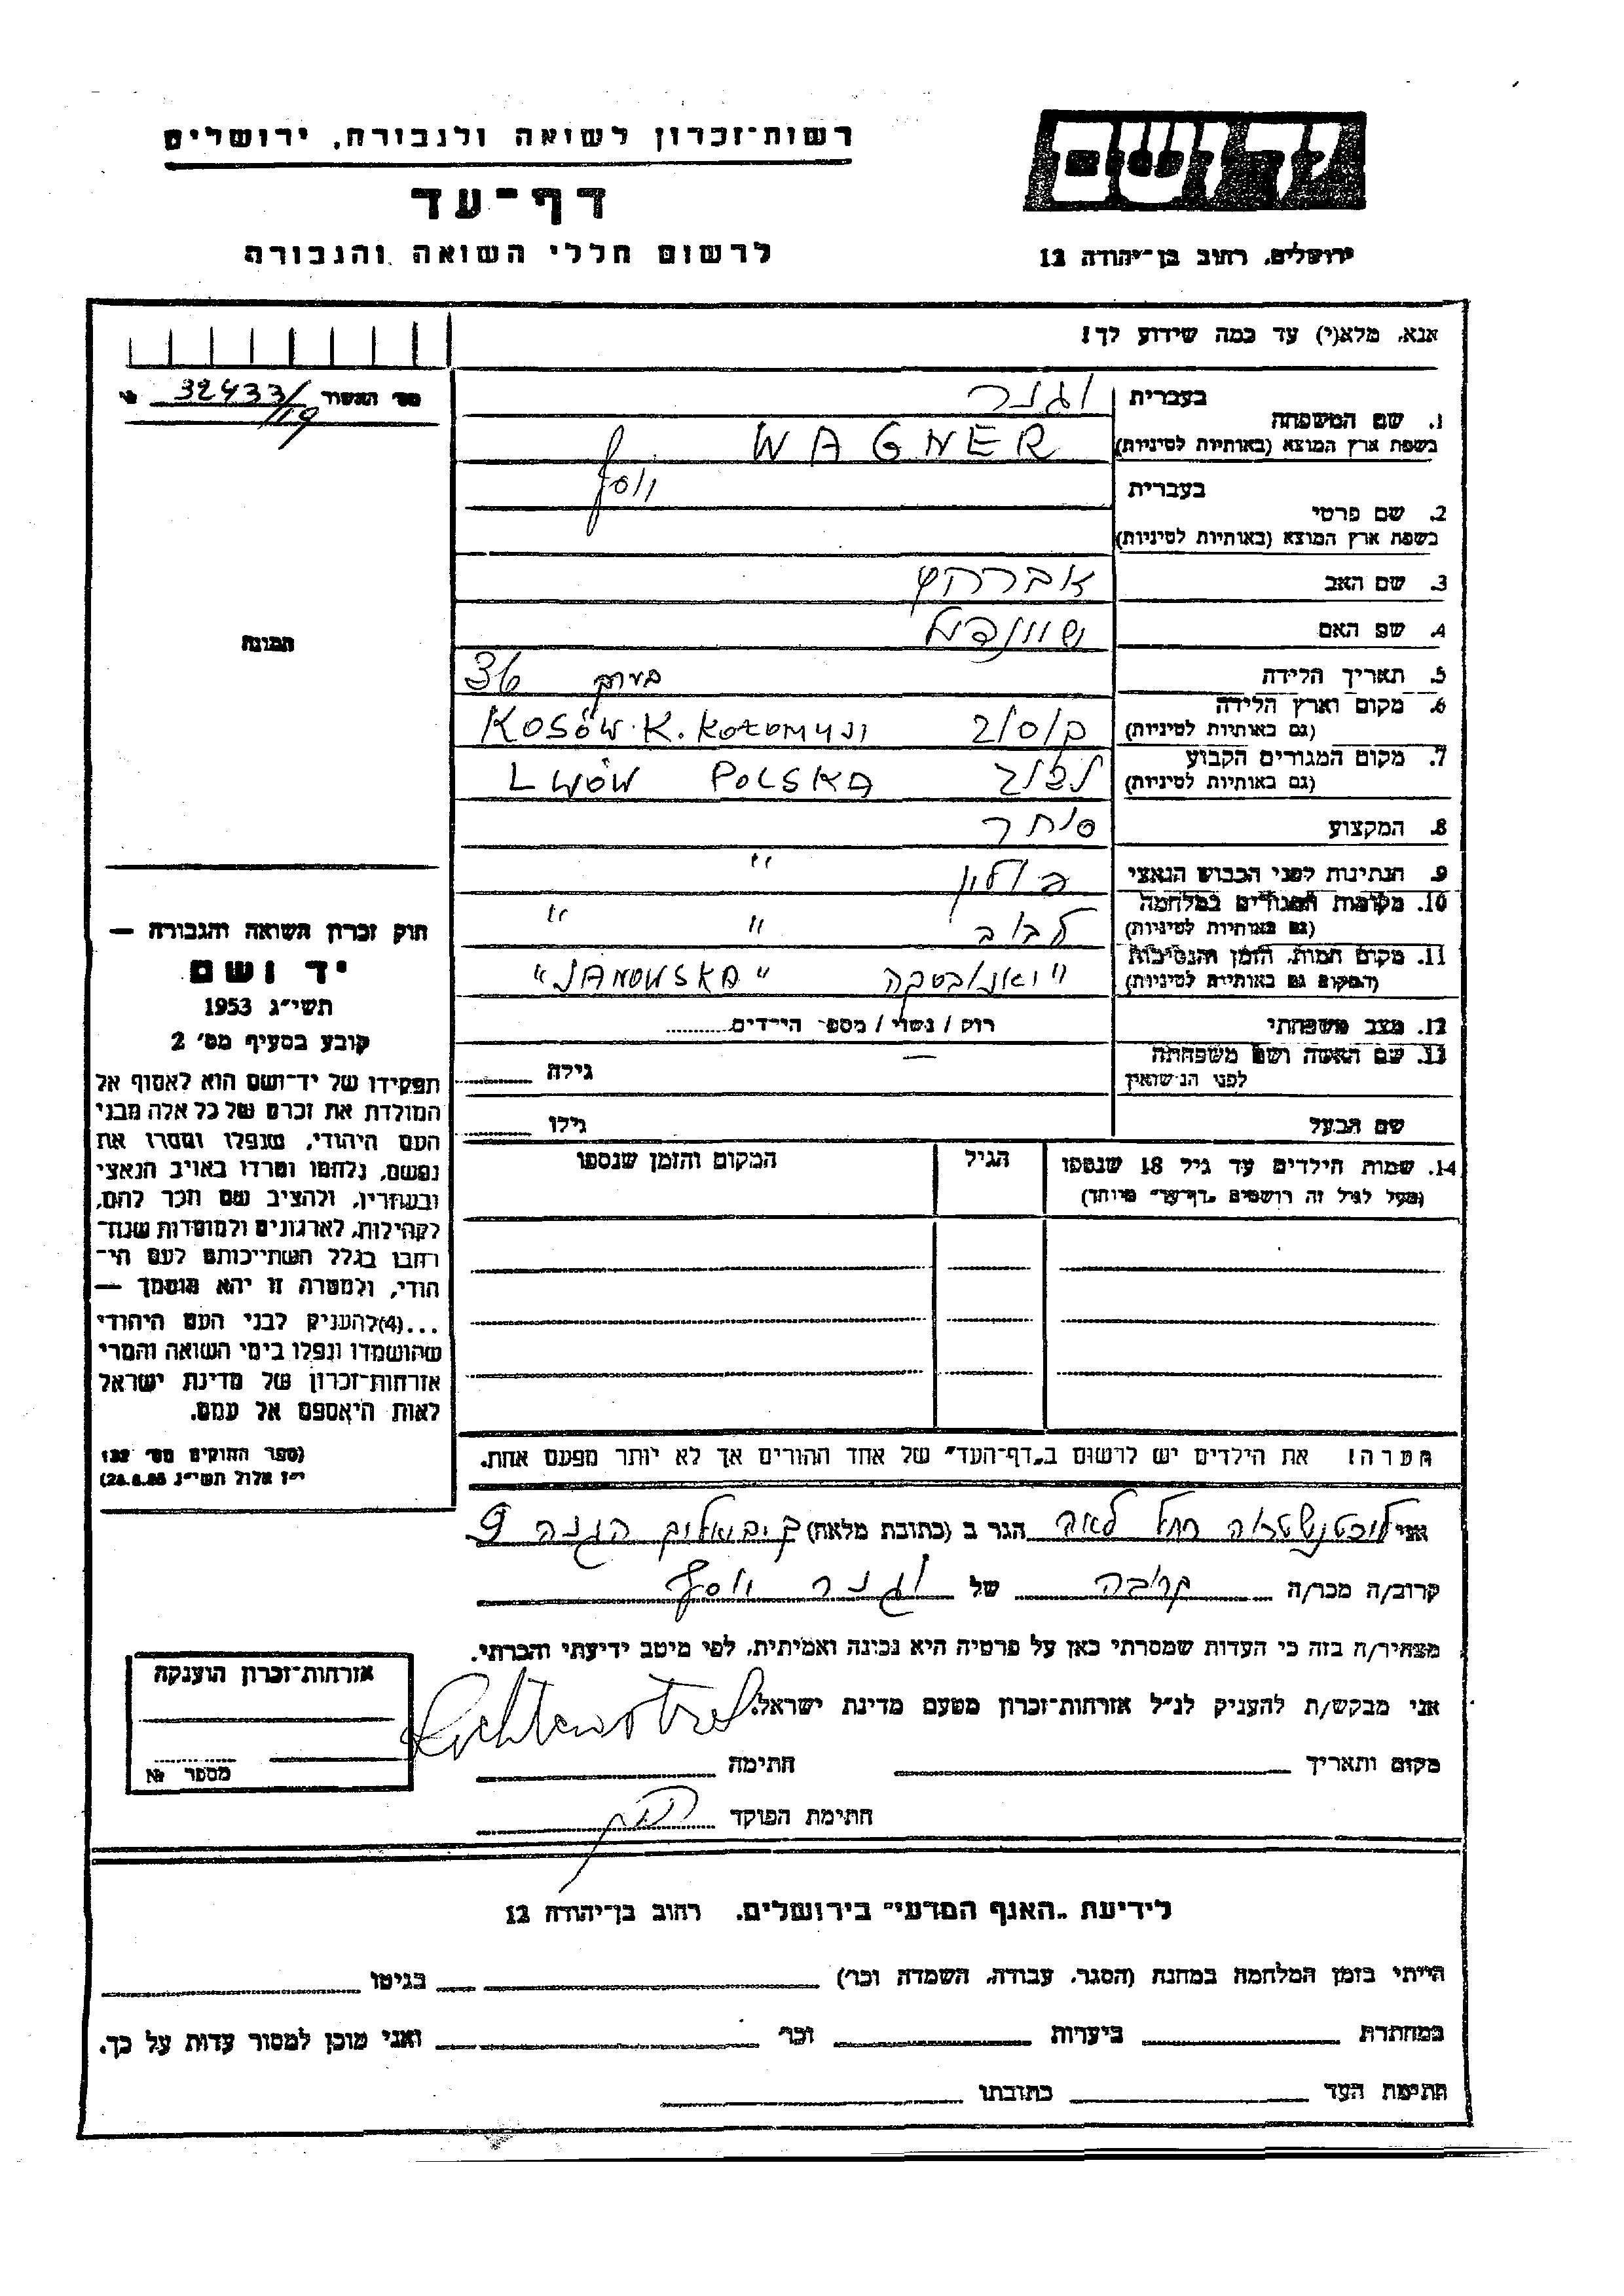 רשות־זכרון לשואה ולגבורה, ירושלים
דף־עד
לרשום חללי השואה והגבורה
יד ושם
ירושלים, רחוב בן־יהודה 12
אנא, מלא(י) עד כמה שידוע לך!
32433/19
1. שם המשפחה
בעברית
וגנר
בשפת ארץ המוצא (באותיות לטיניות)
WAGNER
2. שם פרטי
בעברית
יוסף
בשפת ארץ המוצא (באותיות לטיניות)
3. שם האב
אברהם
4. שם האם
שיינדל
5. תאריך הלידה
36
6. מקום וארץ הלידה
(גם באותיות לטיניות)
Kosów K. Kołomyji
7. מקום המגורים הקבוע
(גם באותיות לטיניות)
לבוב LWÓW POLSKA
8. המקצוע
סוחר
9. הנתינות לפני הכבוש הנאצי
פולין "
10. מקומות המגורים במלחמה
(גם באותיות לטיניות)
לבוב " "
11. מקום המות, הזמן והנסיבות
(המקום גם באותיות לטיניות)
"יאנובסקה" "JANOWSKA"
12. מצב משפחתי
רווק / נשוי / מספר הילדים
13. שם האשה ושם משפחתה
לפני הנישואין
גילה
שם הבעל
גילו
14. שמות הילדים עד גיל 18 שנספו
(מעל לגיל זה רושמים "דף־עד" מיוחד)
הגיל
המקום והזמן שנספו
הערה! את הילדים יש לרשום ב"דף־העד" של אחד ההורים אך לא יותר מפעם אחת.
תמונה
חוק זכרון השואה והגבורה —
יד ושם
תשי"ג 1953
קובע בסעיף מס' 2
תפקידו של יד־ושם הוא לאסוף אל
המולדת את זכרם של כל אלה מבני
העם היהודי, שנפלו ומסרו את
נפשם, נלחמו ומרדו באויב הנאצי
ובעוזריו, ולהציב שם וזכר להם,
לקהילות, לארגונים ולמוסדות שנח־
רבו בגלל השתייכותם לעם הי־
הודי, ולמטרה זו יהא מוסמך —
...(4)להעניק לבני העם היהודי
שהושמדו ונפלו בימי השואה והמרי
אזרחות־זכרון של מדינת ישראל
לאות היאספם אל עמם.
(ספר החוקים מס' 132
י"ז אלול תשי"ג
אני ליכטנשטרה רחל לאה הגר ב (כתובת מלאה) הגנה 9
קרוב/ה מכר/ה קרובה של וגנר יוסף
מצהיר/ה בזה כי העדות שמסרתי כאן על פרטיה היא נכונה ואמיתית, לפי מיטב ידיעתי והכרתי.
אני מבקש/ת להעניק לנ"ל אזרחות־זכרון מטעם מדינת ישראל.
מקום ותאריך
חתימה
חתימת הפוקד
אזרחות־זכרון הוענקה
מספר №
לידיעת "האגף המדעי" בירושלים, רחוב בן־יהודה 12
הייתי בזמן המלחמה במחנה (הסגר, עבודה, השמדה וכו') בגיטו
במחתרת ביערות וכו' ואני מוכן למסור עדות על כך.
חתימת העד כתובתו